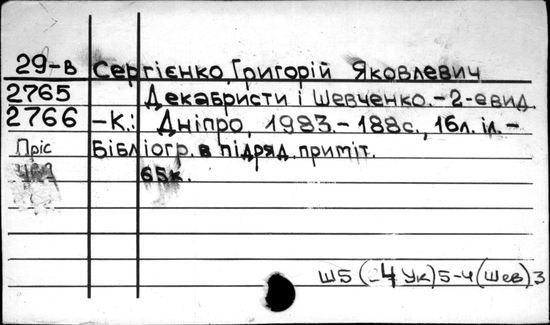 29-в Сергієнко, Григорій Яковлевич
2765 Декабристи і Шевченко.-2-е вид.
2766 -К.: Дніпро, 1983.-188с., 16л. іл.-
Пріс Бібліогр. в підряд. приміт.
65к.
Ш5(4Ук)5-4(Шев)3